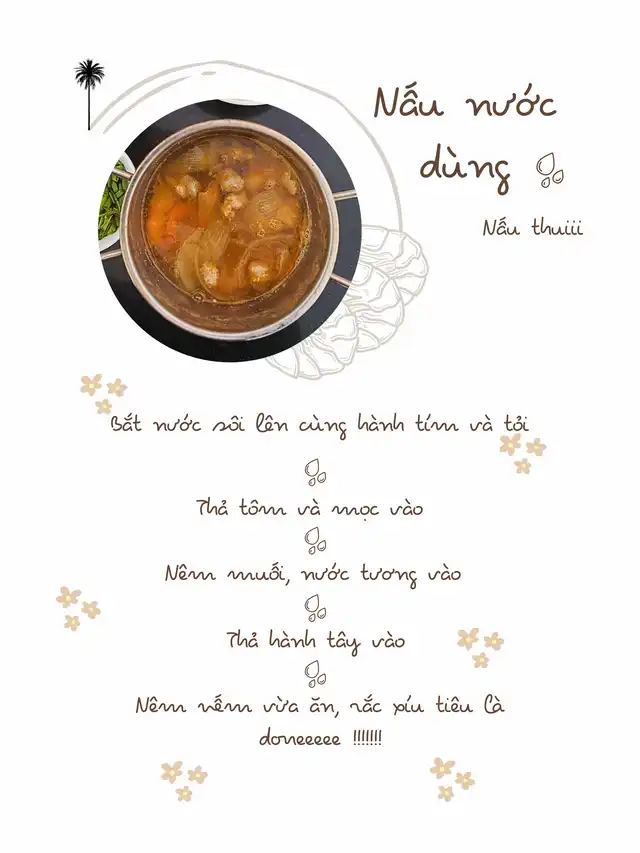 Nấu nước
dùng
Nấu thuiii
Bắt nước sôi lên cùng hành tím và tỏi
Thả tôm và mọc vào
Nêm muối, nước tương vào
Thả hành tây vào
Nêm nếm vừa ăn, rắc xíu tiêu là
doneeeee !!!!!!!